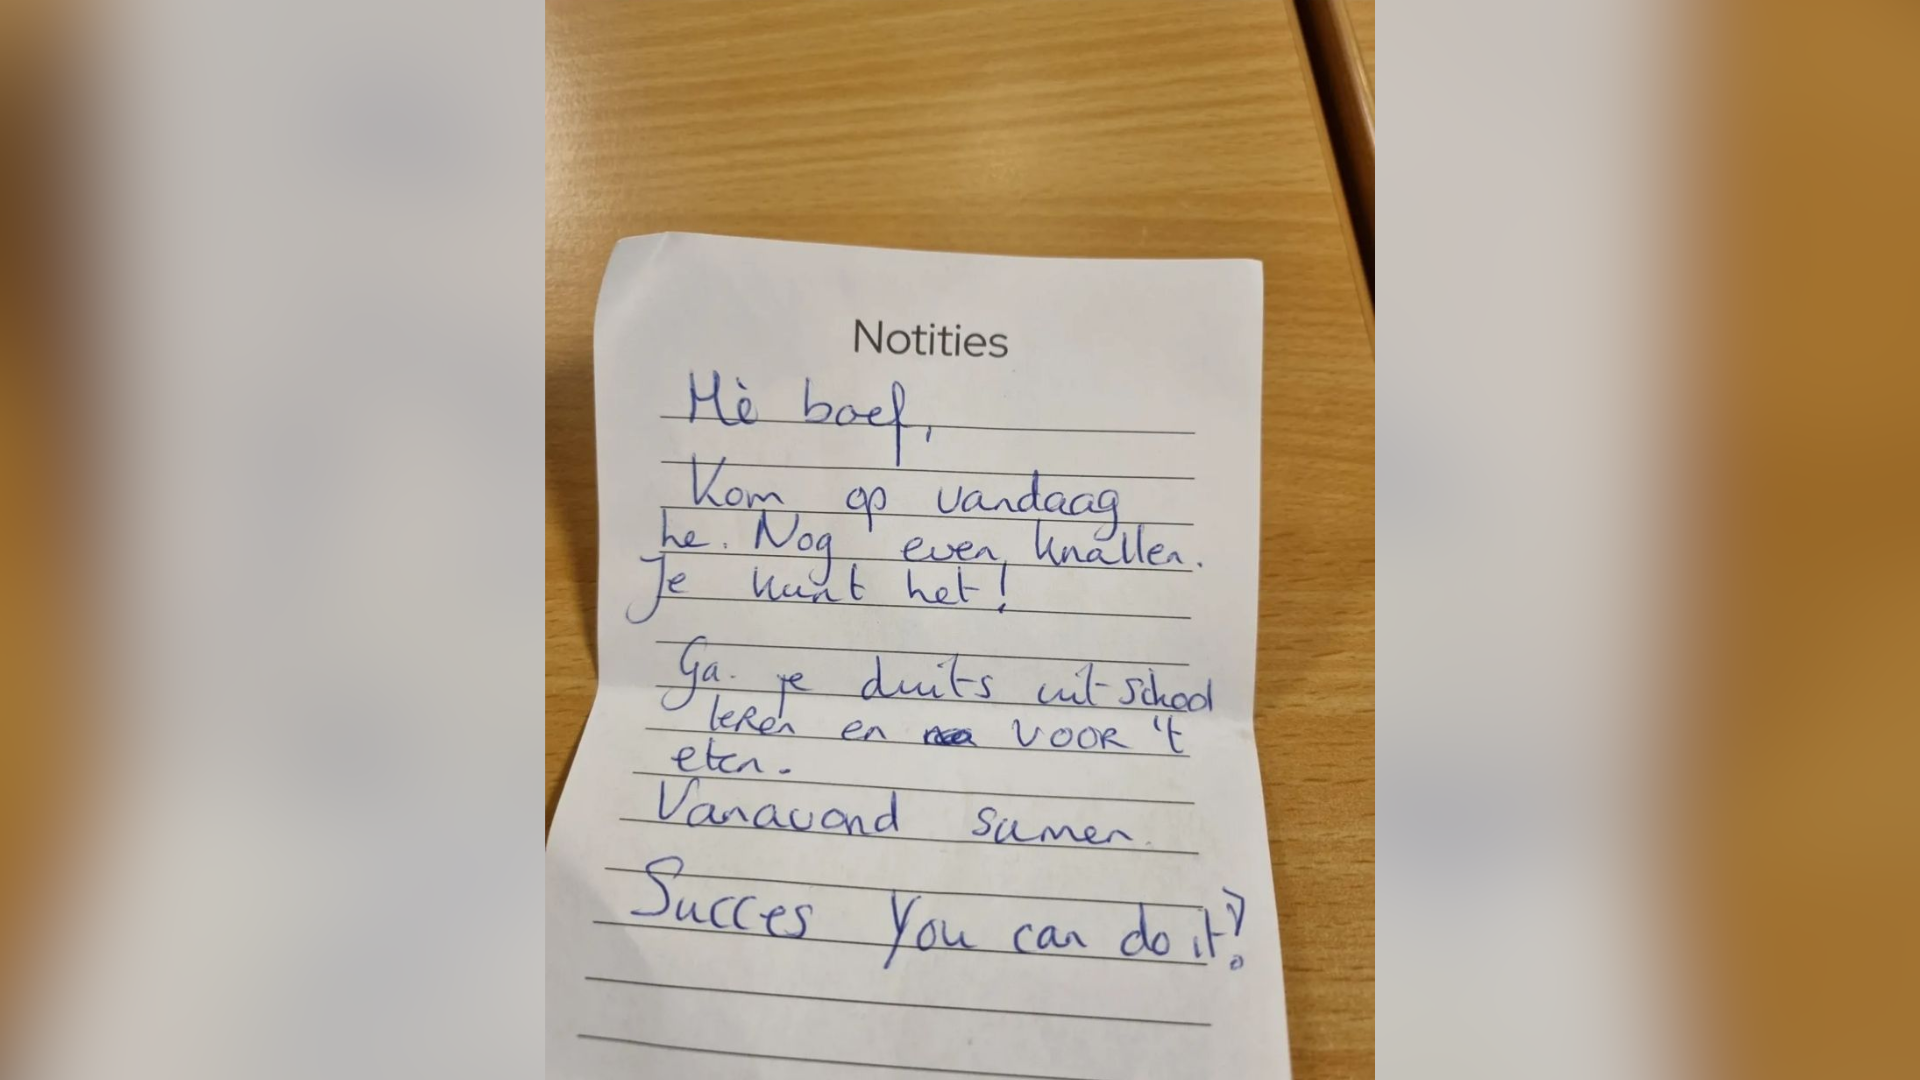 Notities
Hè boef,
Kom op vandaag
he. Nog even knallen.
Je kunt het!
Ga je duits uit school
leren en voor 't
eten.
Vanavond samen.
Succes You can do it!